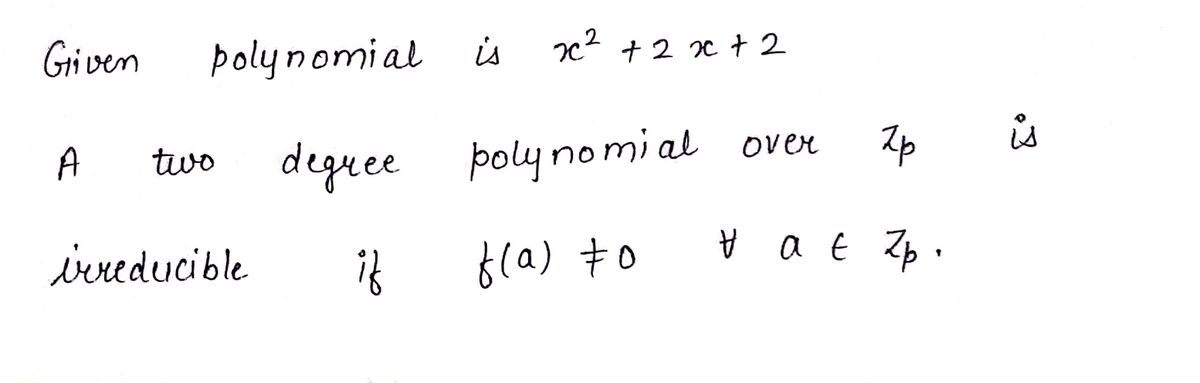 Given polynomial is x² + 2x + 2
A two degree polynomial over Zp is
irreducible if f(a) ≠ 0 ∀ a ∈ Zp.